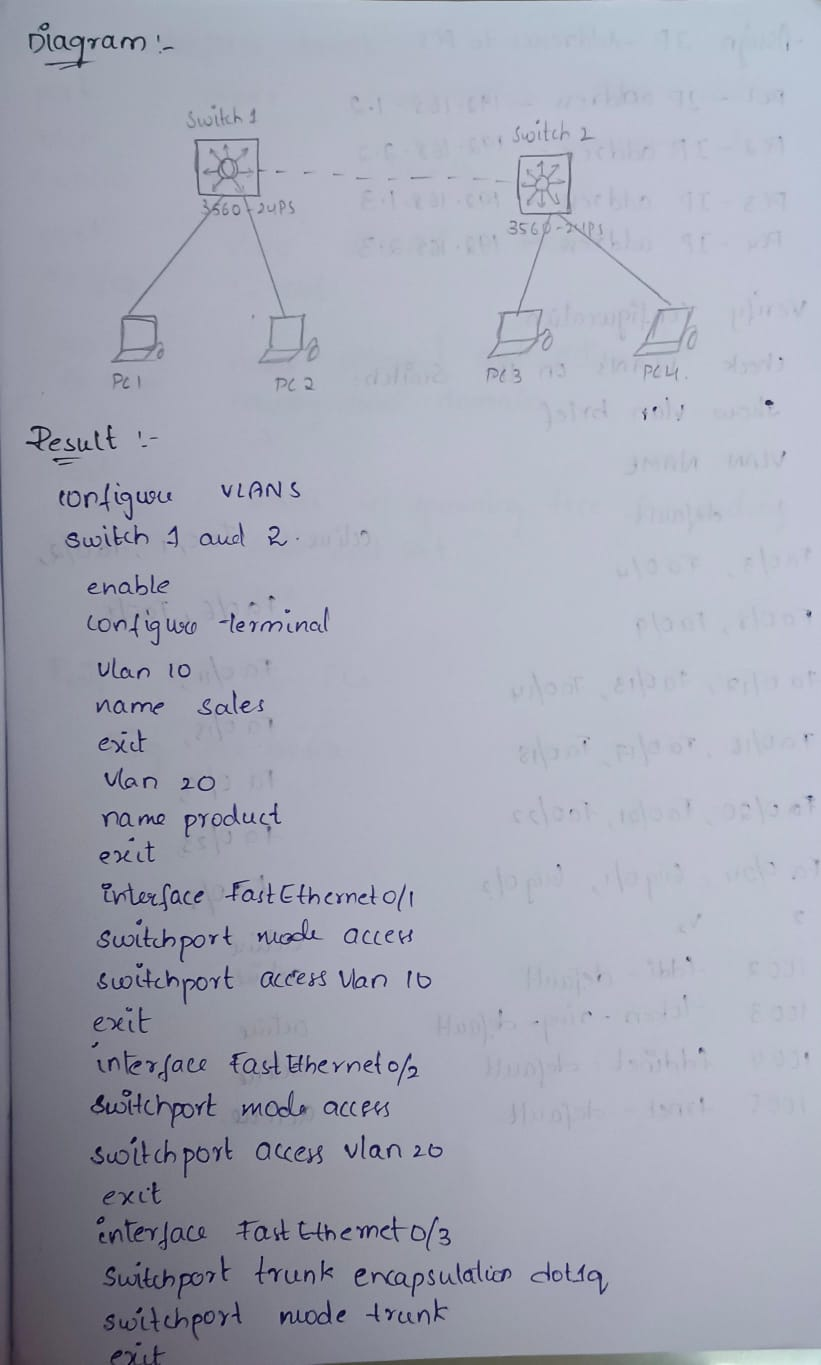 Diagram :-
Switch 1
Switch 2
3560-24PS
3560-24PS
PC1
PC2
PC3
PC4.
Result :-
configure VLANS
switch 1 and 2.
enable
configure terminal
Vlan 10
name sales
exit
Vlan 20
name product
exit
interface FastEthernet0/1
switchport mode access
switchport access Vlan 10
exit
interface FastEthernet0/2
switchport mode access
switchport access vlan 20
exit
interface FastEthernet0/3
switchport trunk encapsulation dot1q
switchport mode trunk
exit